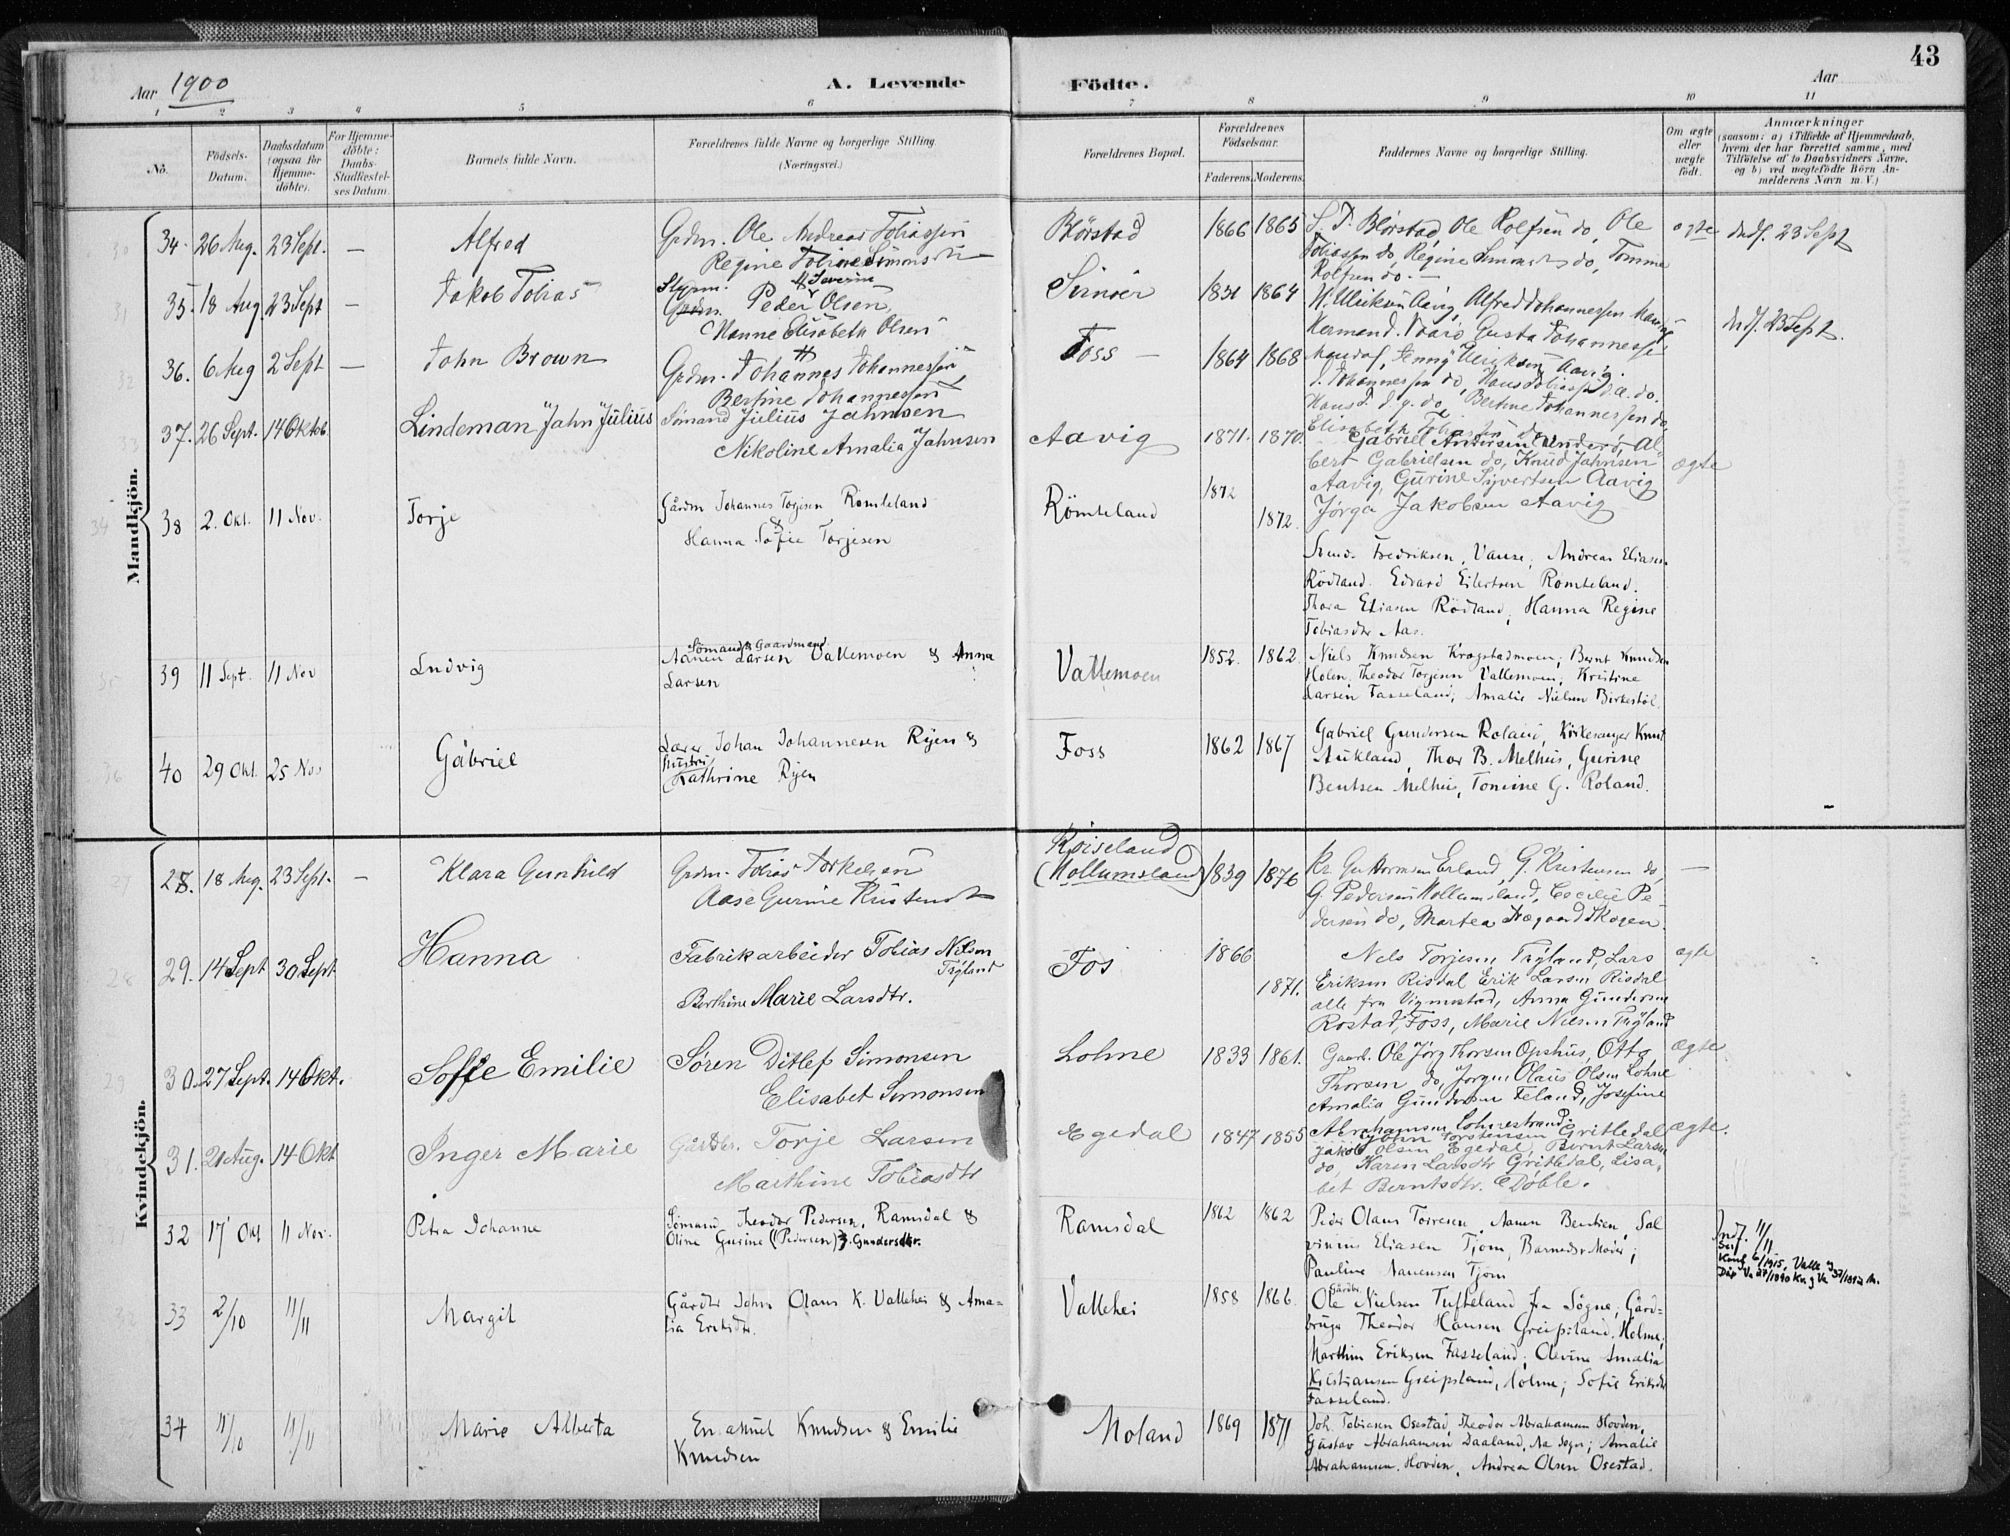 43
Aar 1900
A. Levende
Födte.
Aar
1 2 3 4 5 6 7 8 9 10 11
No.
Födsels-Datum.
Daabsdatum (ogsaa for Hjemmedöbte).
For Hjemmedöbte: Daabs-Stadfæstelses Datum.
Barnets fulde Navn.
Forældrenes fulde Navne og borgerlige Stilling
(Næringsvei.)
Forældrenes Bopæl.
Forældrenes Födselsaar.
Faderens. Moderens.
Faddernes Navne og borgerlige Stilling.
Om ægte eller uægte födt.
Anmærkninger
(saasom: a) i Tilfælde af Hjemmedaab,
hvem der har forrettet samme, med
Tilföielse af to Daabsvidners Navne.
og b) ved uægtefödte Börn Anmelderens Navn m. V.)
Mandkjön.
34. 26 Aug. 23 Sept. — Alfred
Grdm. Ole Andreas Tobiassen
Regine Tobine Simonsdtr
Blörstad 1866 1865
S. T. Blørstad, Ole Rolfsen do, Ole
Tobiassen do, Regine Simonsdtr do, Tomine
Rolfsen do. —
ægte
Indf. 23 Sept
35. 18 Aug. 23 Sept — Jakob Tobias
Styrm. Severin
Grdm. Peder Olsen,
Hanne Elisabeth Olsen
1831 1864
Indf. 23 Sept.
36. 6 Aug 2 Sept — John Brown
Grdm. Johannes Johannessen
Bertine Johannessen
Foss — 1864 1868
37. 26 Sept. 14 Oktob. Lindeman "Jahn" Julius
Sömand Julius Jahnsen
Nikoline Amalia Jahnsen
Aavig 1871. 1870.
Gabriel Andersen Underö, Albert
Gabrielsen do, Knud Jahnsen
Aavig, Gurine Syvertsen Aavig
Jörga Jakobsen Aavig
ægte
38 2. Okt. 11 Nov. Torje
Gårdm Johannes Torjesen Romteland
Hanna Sofie Torjesen
Römteland 1872 1872.
Fredriksen, Vanse, Andreas Eliasen
Rödland. Edvard Eilertsen Romteland.
Thora Eliasen Rödland, Hanna Regine
Tobiasdtr Aas.
39 11 Sept. 11 Nov Ludvig
Sömand & Gaardmand
Aanen Larsen Vallemoen & Anna
Larsen
Vallemoen 1852. 1862.
Niels Knudsen Krogstadmoen; Bernt Knudsen
Holen, Theodor Torjesen Vallemoen; Kristine
Larsen Fasseland; Amalie Nielsen Birkestöl.
40 29 Okt. 25 Nov Gabriel
Lærer Johan Johannesen Ryen &
Hustru
Kathrine Ryen
Foss 1862 1867
Gabriel Gundersen Roland, Kirkesanger Knut
Aukland, Thor B. Melhus, Gurine
Bentsen Melhus, Tomine G. Roland.
Kvindekjön.
28. 18 Aug. 23 Sept. — Klara Gunhild
Grdm. Tobias Torkelsen
Aase Gurine Kristensdtr
Röiseland
(Mollumsland) 1839 1876
Kr. Guttormsen Erland, G. Kristensen do,
G. Pedersen Mollumsland, Cecilie Pedersen
do, Martea Skogen.
—
29. 14 Sept 30 Sept Hanna
Fabrikarbeider Tobias Nilsen
Trÿland
Berthine Marie Larsdtr.
Fos 1866 1871.
Nels Torjesen Trÿland, Lars
Eriksen Risdal Erik Larsen Risdal
alle fra Vigmostad, Anna Gundersen
Rostad, Foss, Marie Nilsen Trÿland
ægte
30. 27 Sept. 14 Okt. Soffie Emilie
Sören Ditlef Simonsen
Elisabet Simonsen
Lohne 1833 1861.
Gaarb. Ole Jörg Thorsen Opshus, Otto
Thorsen do, Jörgen Olaus Olsen Lohne
Amalia Gundersen Feland, Josefine
Abrahamsen Lohnestrand
ægte
31. 21 Aug. 14 Okt Inger Marie
Gårdbr. Torje Larsen
Marthine Tobiasdtr
Egedal 1847 1855
John Torstensen Gritledal
Jakob Olsen Egedal, Bernt Larsen
do, Karen Larsdtr Gritledal, Lisabet
Berntsdtr. Döble.
ægte.
32 17 Okt 11 Nov. Petra Johanne
Sömand Theodor Pedersen, Ramsdal &
Oline Gurine (Pedersen) f. Gundersdtr.
Ramsdal 1862 1862
Peder Olaus Torresen, Aanen Bentsen, Salvinius
Eliasen Tjom, Barnets Moder;
Pauline Aanensen Tjom
Indf. 11/11
33 2/10 11/11 Margit
Gårdbr John Olaus K. Vallehei & Amalia
Eriksdtr.
Vallehei 1858 1866.
Gårdbr
Ole Nielsen Tufteland fra Søgne; Gårdbruger
Theodor Hansen Greipsland, Holme;
Marthin Eriksen Fasseland; Olevine Amalia
Kristiansen Greipsland, Holme; Sofie Eriksdtr
Fasseland.
34 11/10 11/11 Marie Alberta
Emanuel Knudsen & Emilie
Knudsen
Moland 1869 1871
Joh. Tobiasen Osestad, Theodor Abrahamsen Hovden,
Gustav Abrahamsen Daaland, Amalie
Abrahamsen, Hovden, Andrea Olsen Osestad.